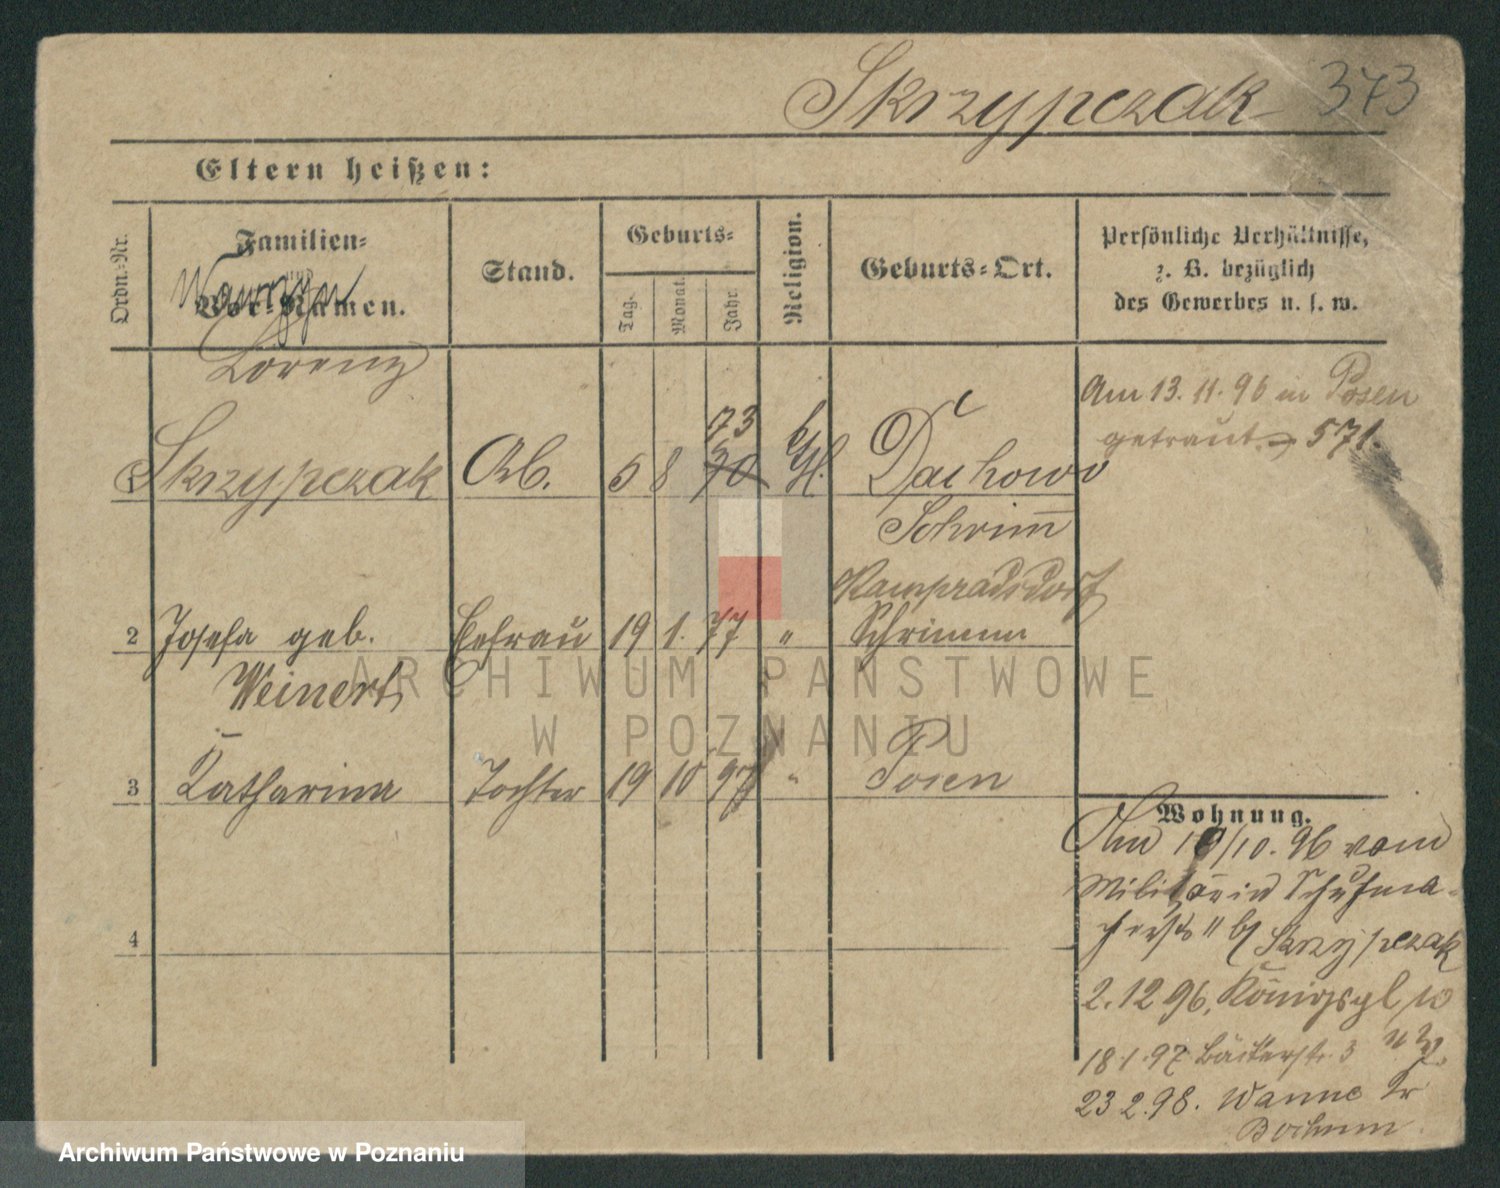 Skrzypczak 373
Eltern heißen:
Ordn.-Nr.
Familien-
und
Vor-Namen.
Wawrzyn
Stand.
Geburts-
Tag.
Monat.
Jahr.
Religion.
Geburts-Ort.
Persönliche Verhältnisse,
z. B. bezüglich
des Gewerbes u. s. w.
Lorenz
1 Skrzypczak Arb. 5 8 70 73 kath. Dachowo
Schrimm
Am 13. 11. 96 in Posen
getraut. 571.
Kampradsdorf
2 Josefa geb. Eefrau 19 1. 77 " Schrimm
Weinert
3 Katharina Tochter 19 10 97 " Posen
4
Wohnung.
Am 10/10. 96 vom
Militär in Schuhma-
cherstr 11 b/ Skrzypczak
2. 12 96. Königspl 10
18 1. 97 Bäckerstr. 3
23 2. 98. Wanne Kr
Bochum
ARCHIWUM PAŃSTWOWE
W POZNANIU
Archiwum Państwowe w Poznaniu